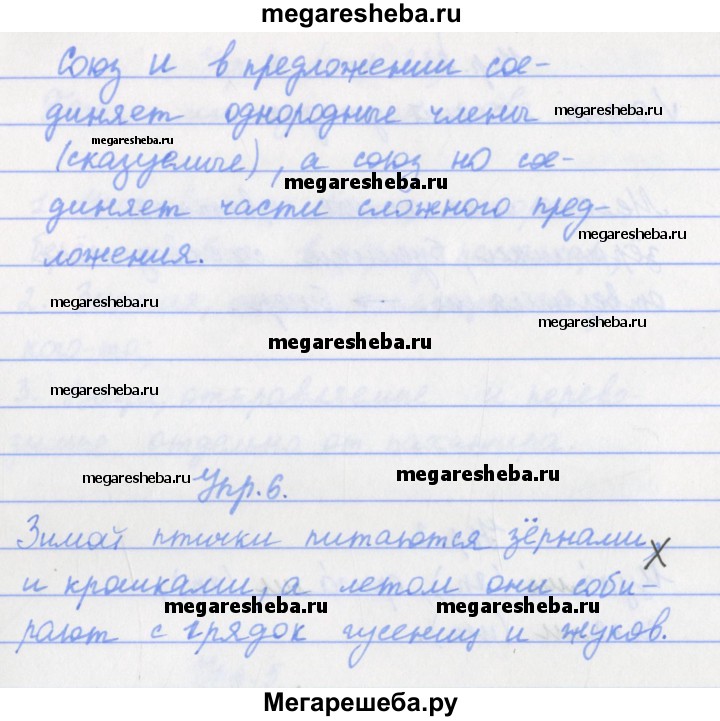 megaresheba.ru
Союз и в предложении сое-
диняет однородные члены
megaresheba.ru
megaresheba.ru
(сказуемые), а союз но сое-
megaresheba.ru
диняет части сложного пред-
megaresheba.ru
ложения.
megaresheba.ru
megaresheba.ru
megaresheba.ru
megaresheba.ru
megaresheba.ru
Упр.6.
megaresheba.ru
Зимой птички питаются зёрнами
и крошками, а летом они соби-
megaresheba.ru
megaresheba.ru
рают с грядок гусениц и жуков.
Мегарешеба.ру